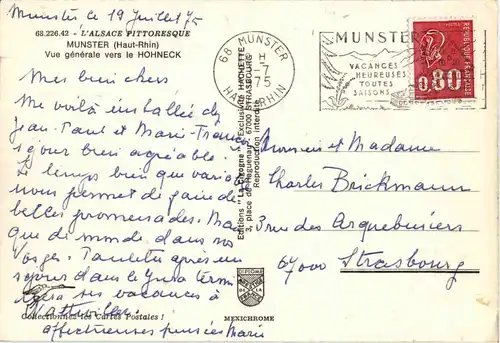 Munster le 19 Juillet 75
68.226.42 - L'ALSACE PITTORESQUE
MUNSTER (Haut-Rhin)
Vue générale vers le HOHNECK
Mes bien chers
Me voilà installée chez
Jean-Paul et Marie-France
séjour bien agréable.
le temps bien que variable
nous permet de faire de
belles promenades. Mais
que de monde dans nos
Vosges. Paulette après un
séjour dans le Jura termi
ses vacances à
Wattwiller.
affectueuses pensées Marie
Editions "La Cigogne" - Exclusivité HACHETTE
3, place de Haguenau, 67000 STRASBOURG
Reproduction interdite
68 MUNSTER
H
-7
75
HAUT-RHIN
MUNSTER
VACANCES
HEUREUSES
TOUTES
SAISONS
0,80
REPUBLIQUE FRANÇAISE
Monsieur et Madame
Charles Brickmann
3 rue des Arquebusiers
67000 Strasbourg
DIPLOME
PRESTIGE
DE LA
FRANCE
Collectionnez les Cartes Postales !
MEXICHROME